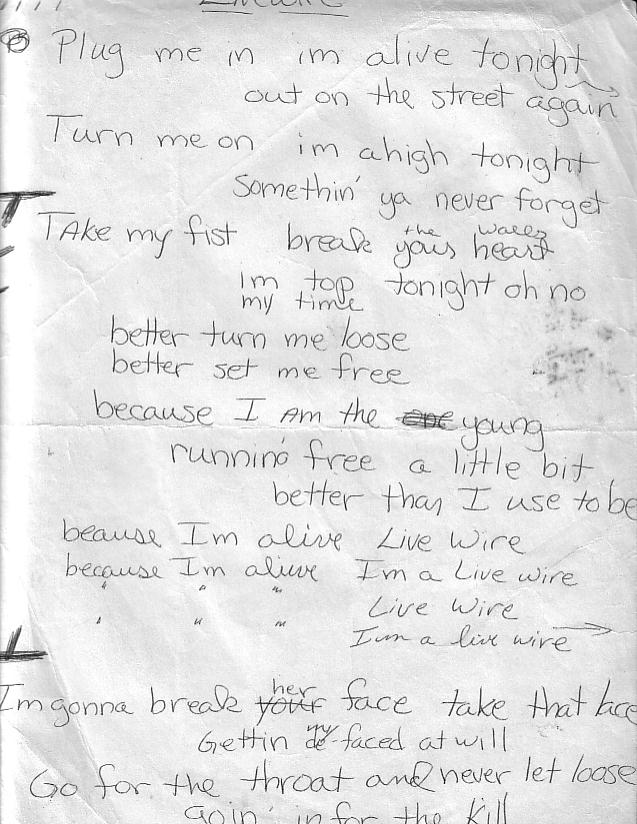 Livewire
Plug me in im alive tonight
out on the street again
Turn me on im ahigh tonight
Somethin' ya never forget
the walls
TAke my fist break yours heart
Im top tonight oh no
my time
better turn me loose
better set me free
because I Am the one young
runnin' free a little bit
better than I use to be
beause Im alive Live Wire
because Im alive Im a Live wire
" " " Live Wire
" " " Im a live wire
her
Im gonna break your face take that
my
Gettin de-faced at will
Go for the throat and never let loose
Goin' in for the Kill